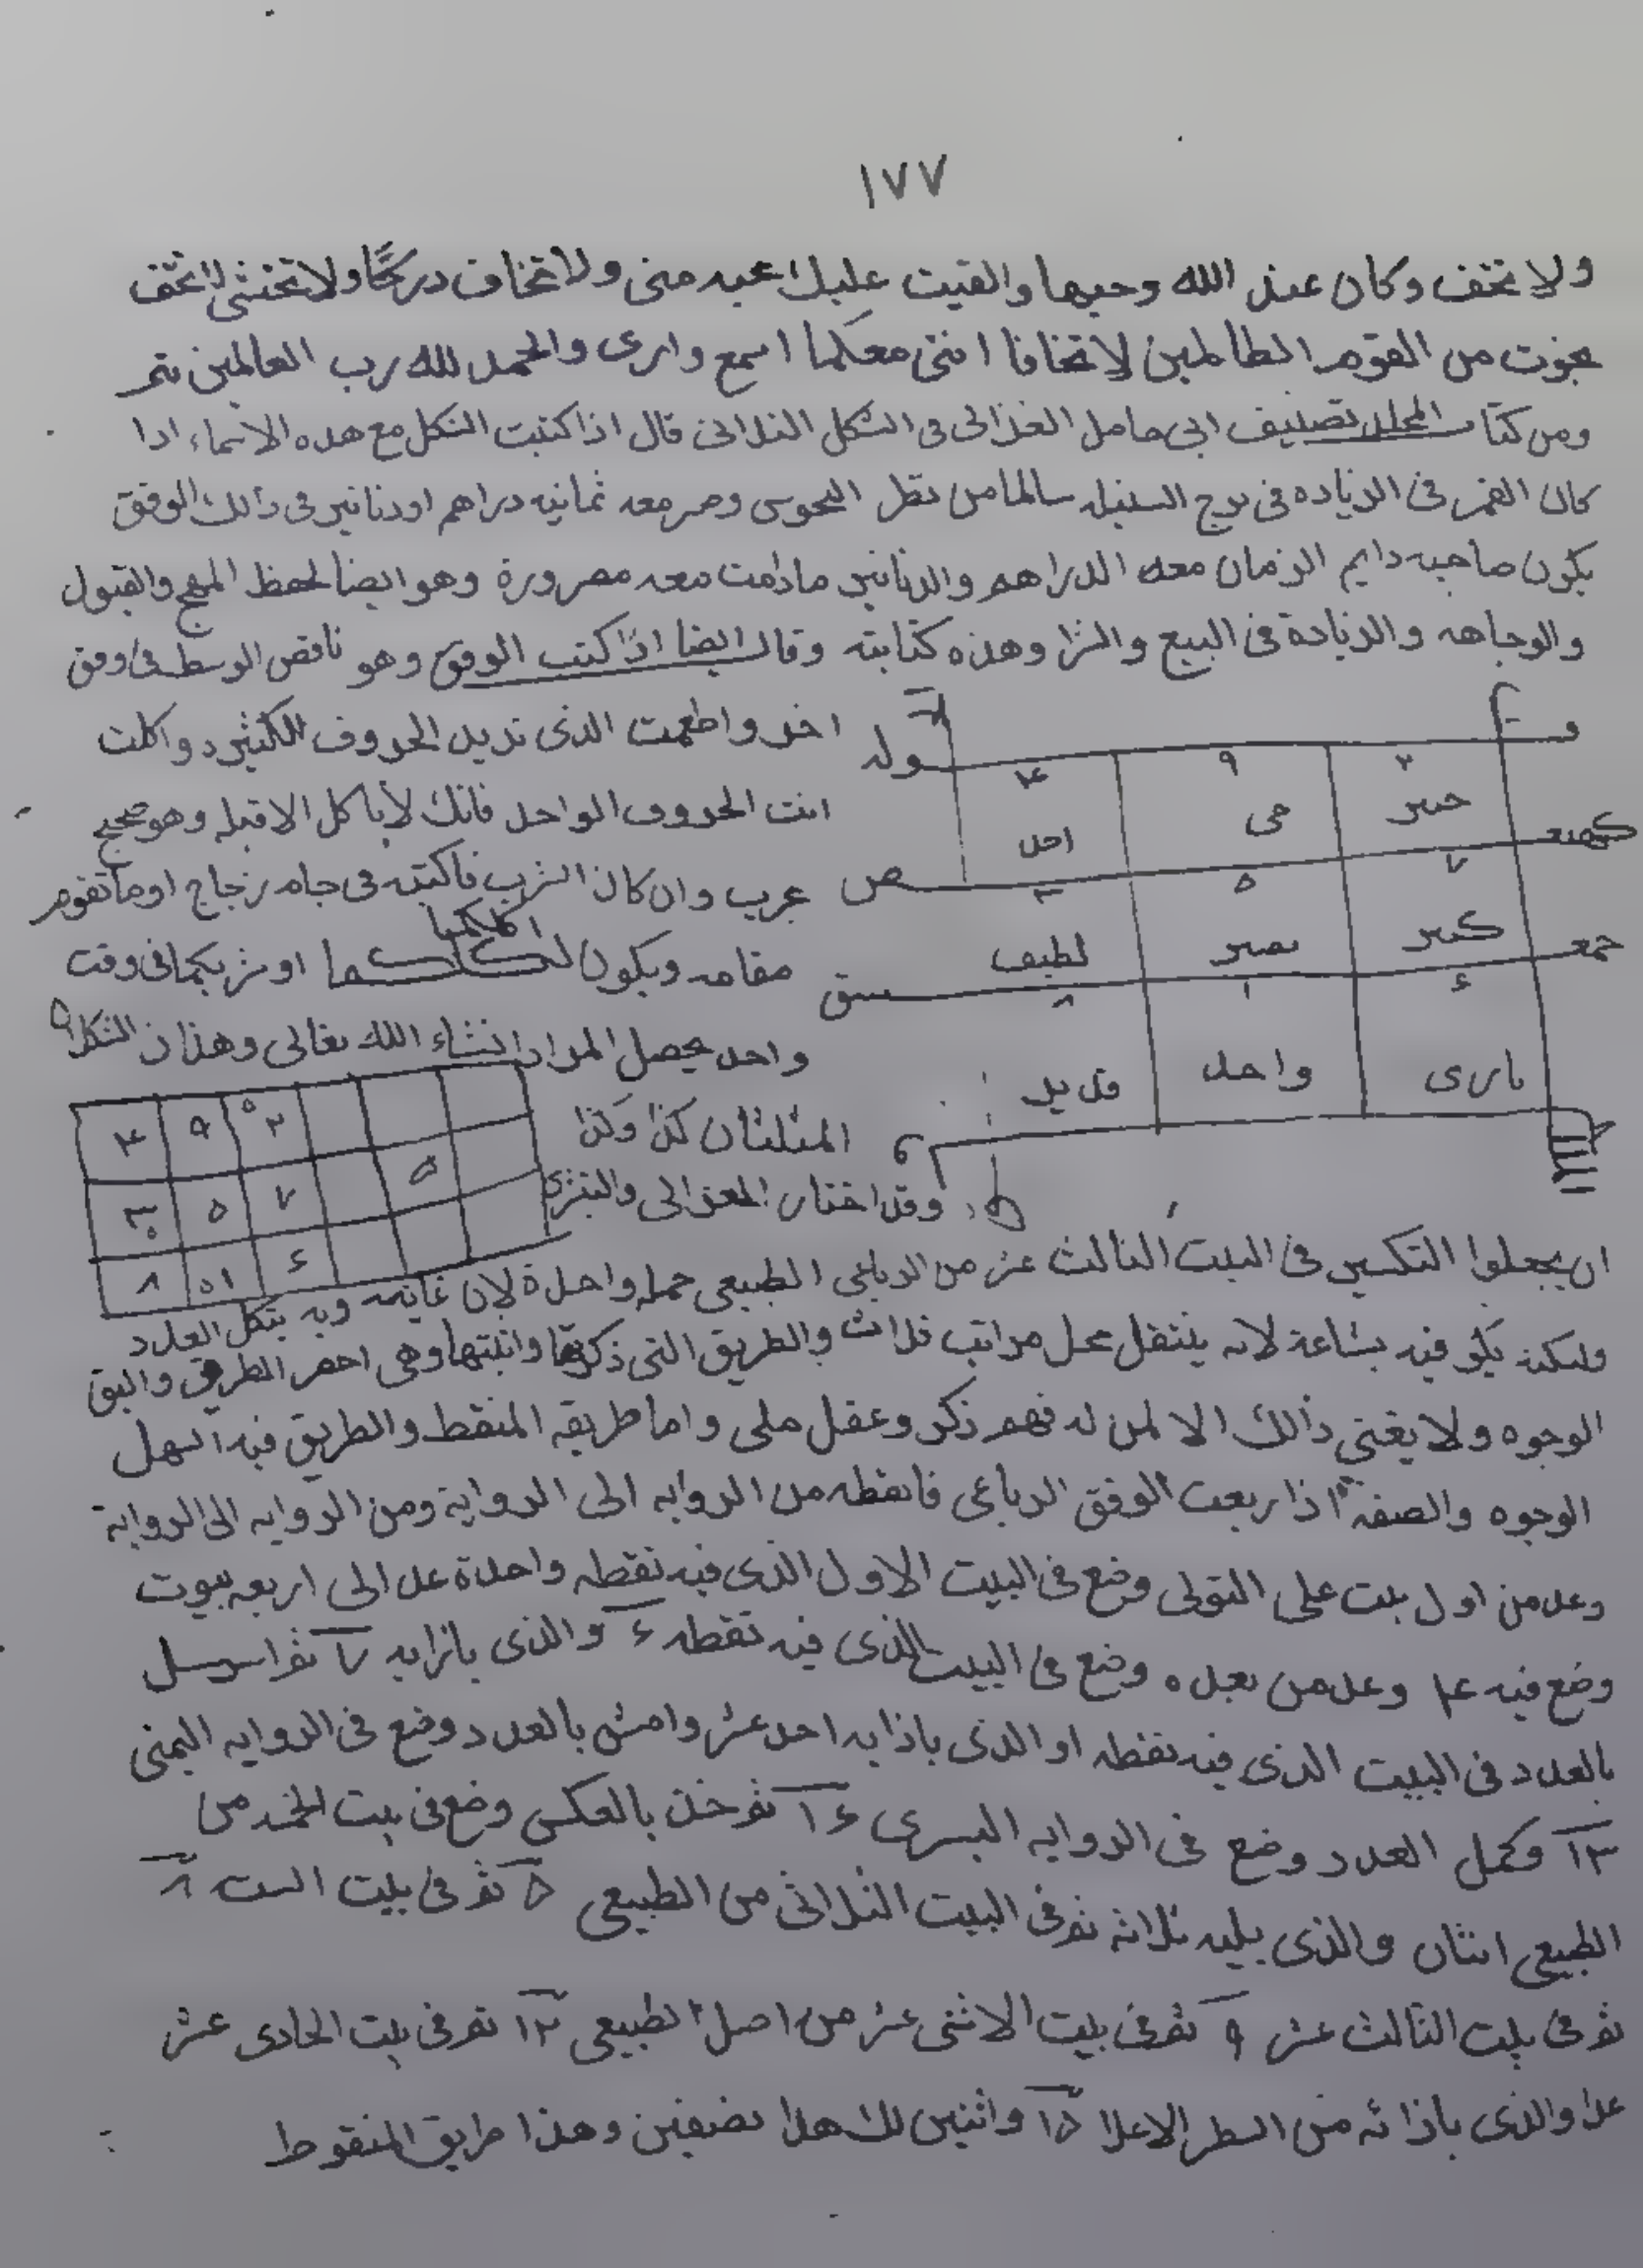 ١٧٧
ولا تخف وكان عند الله وجيها والقيت عليك محبه منى ولا تخاف دركًا ولا تخشى لا تخف
نجوت من القوم الظالمين لا تخافا اننى معكما اسمع وارى والحمد لله رب العالمين تم
ومن كتاب تصنيف ابى حامل الغزالى فى الشكل الثلاثى قال اذا كتبت الشكل مع هده الاسماء ادا
كان القمر فى الزياده فى برج السنبله سالما من نظر النحوس وصر معه ثمانيه دراهم او دنانير فى ذالك الوفق
يكون صاحبه دايم الزمان معه الدراهم والدنانير مادامت معه مصرورة وهو ايضا لحفظ المهج والقبول
والوجاهه والزيادة فى البيع والشرا وهذه كتابته وقال ايضا اذا كتب الوفق وهو ناقص الوسط فى وفق
اخر واطعمت الذى تريد الحروف الكثيره واكلت
انت الحروف الواحد فانك لا ياكل الا قبله وهو صحيح
عرب وان كان الشرب فاكتبه فى جام زجاج او ما تقوم
مقامه ويكون اكلكما او شربكما فى وقت
واحد يحصل المراد انشاء الله تعالى وهذان الشكلان
المثلثان كذا وكذا
وقد اختار الغزالى
وله
٤ ٩ ٢
احد حى خبير
كهيعص
٣ ٥ ٧
لطيف بصير كبير
حمعسق
٨ ١ ٦
قدير واحد بارى
٤ ٩ ٢
٣ ٥ ٧ ٥
٨ ١ ٦
ان يجعلوا التكسير فى البيت الثالث عشر من الرباعى الطبيعى جمله واحدة لان غايته وبه يتكل العدد
ولكنه يكو فيه بشاعة لانه ينتقل محل مراتب ثلاث والطريق التى ذكرتها واثبتها وهى احصر الطرق واليق
الوجوه ولا يغنى ذالك الا لمن له فهم ذكر وعقل ملى واما طريقه المنقط والطريق فيه اسهل
الوجوه والصفه اذا ربعت الوفق الرباعى فانقطه من الزوايه الى الزواية ومن الزوايه الى الزواية
وعد من اول بيت على التولى وضع فى البيت الاول الذى فيه نقطه واحدة عد الى اربعه بيوت
وضع فيه ٤ وعد من بعده وضع فى البيت الذى فيه نقطه ٦ والذى بازايه ٧ ثم استرسل
بالعدد فى البيت الذى فيه نقطه او الذى باذايه احد عشر وامش بالعدد وضع فى الزوايه اليمنى
١٣ وكمل العدد وضع فى الزوايه اليسرى ١٦ ثم خذ بالعكس وضع فى بيت الخمه من
الطبيعى اثنان والذى يليه ثلاثه ثم فى البيت الثلاثى من الطبيعى ٥ ثم فى بيت الست ٨
ثم فى بيت الثالث عشر ٩ ثم فى بيت الاثنى عشر من اصل الطبيعى ١٢ ثم فى بيت الحادى عشر
عدا والذى باذائه من السطر الاعلا ١٥ واثنين لك هدا تضيفين وهذا طريق المنقوط